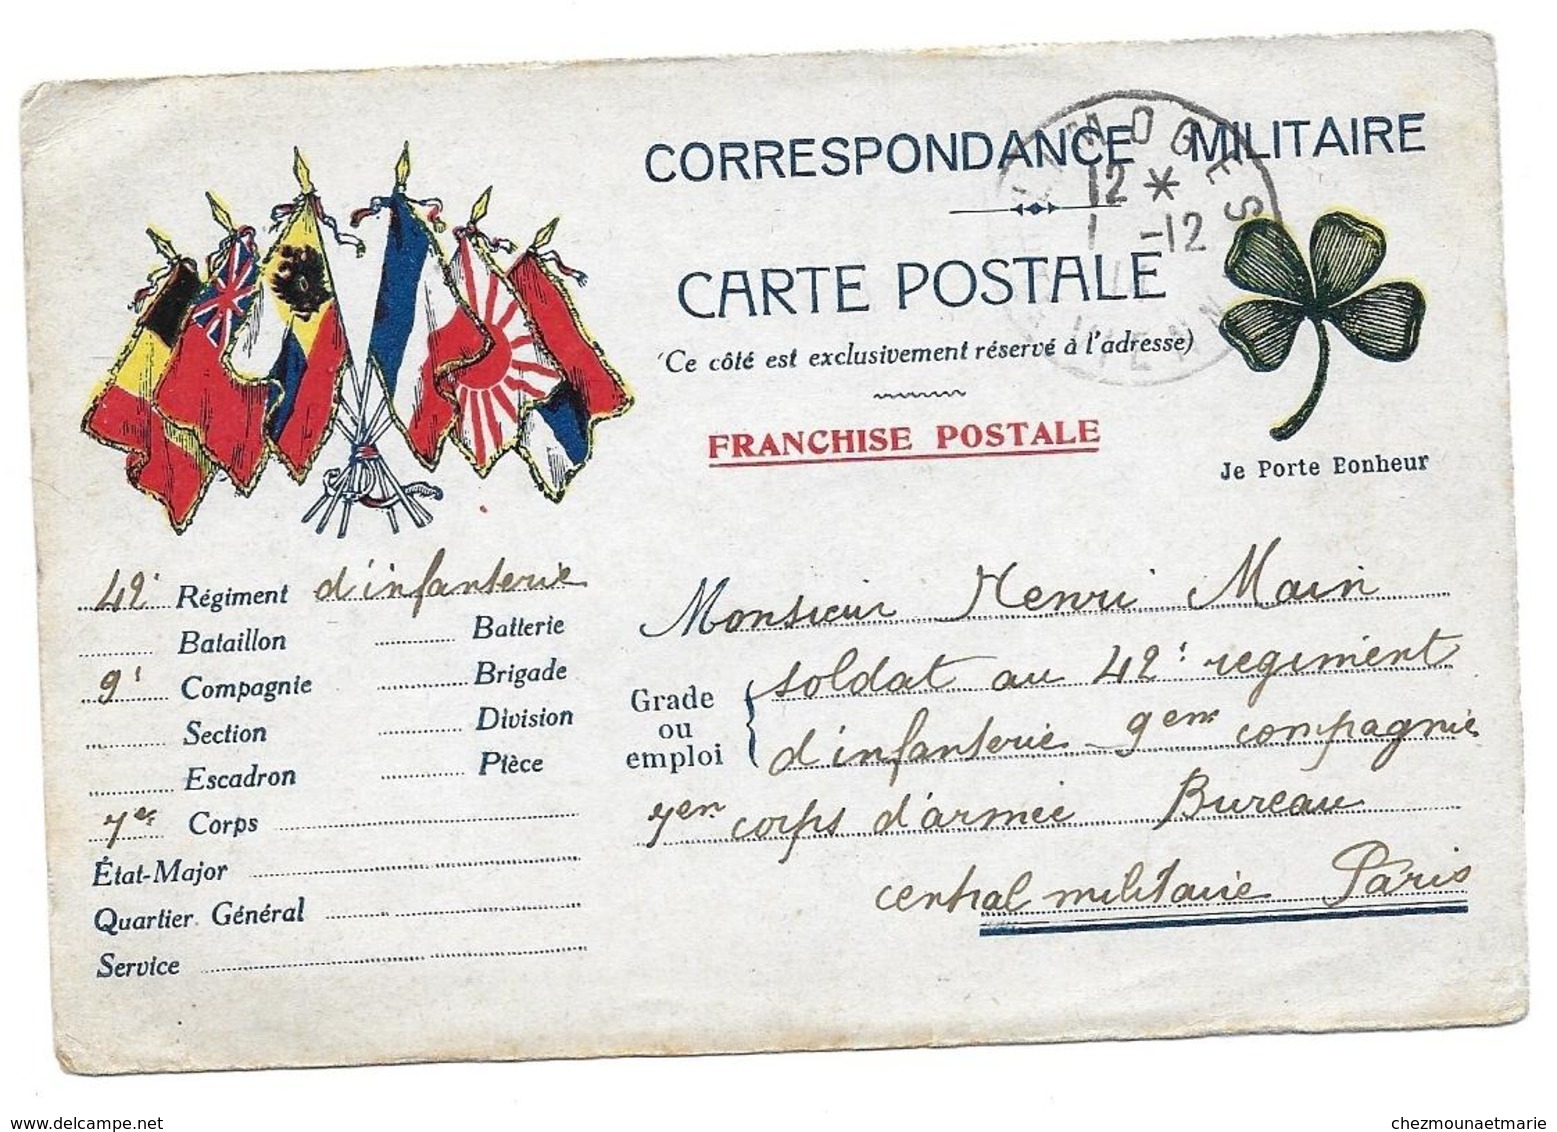 CORRESPONDANCE MILITAIRE
LIMOGES
12 *
1 -12
VIENN
CARTE POSTALE
(Ce côté est exclusivement réservé à l'adresse)
FRANCHISE POSTALE
Je Porte Bonheur
42e Régiment d'infanterie
Bataillon Batterie
9e Compagnie Brigade
Section Division
Escadron Pièce
7e Corps
État-Major
Quartier Général
Service
Monsieur Henri Main
Grade ou emploi
soldat au 42e regiment
d'infanterie 9em compagnie
7em corps d'armée Bureau
central militaire Paris
delcampe.net
chezmounaetmarie